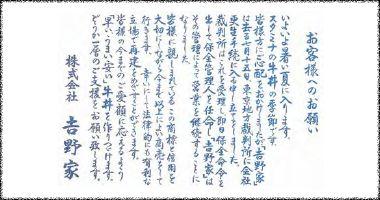 お客様へのお願い
いよいよ暑い夏に入ります。
スタミナの牛丼の季節です。
皆様方にご心配をおかけしましたが、"吉野家"
は去る七月十五日、東京地方裁判所に会社
更生手続に入る申し立てをしました。
裁判所はこれを受理し即日保全命令を
出して保全管理人を任命し、"吉野家"は
その管理によって営業を継続することに
なりました。
皆様に親しまれているこの商標と信用を
大切にしながら今まで以上によい商売をして
行きます。幸いにして法律的にも有利な
立場で再建をめざすことができます。
皆様の今までのご愛顧に応えるよう
「早い、うまい、安い」牛丼を作りつづけます。
どうか一層のご支援をお願い致します。
株式会社 吉野家